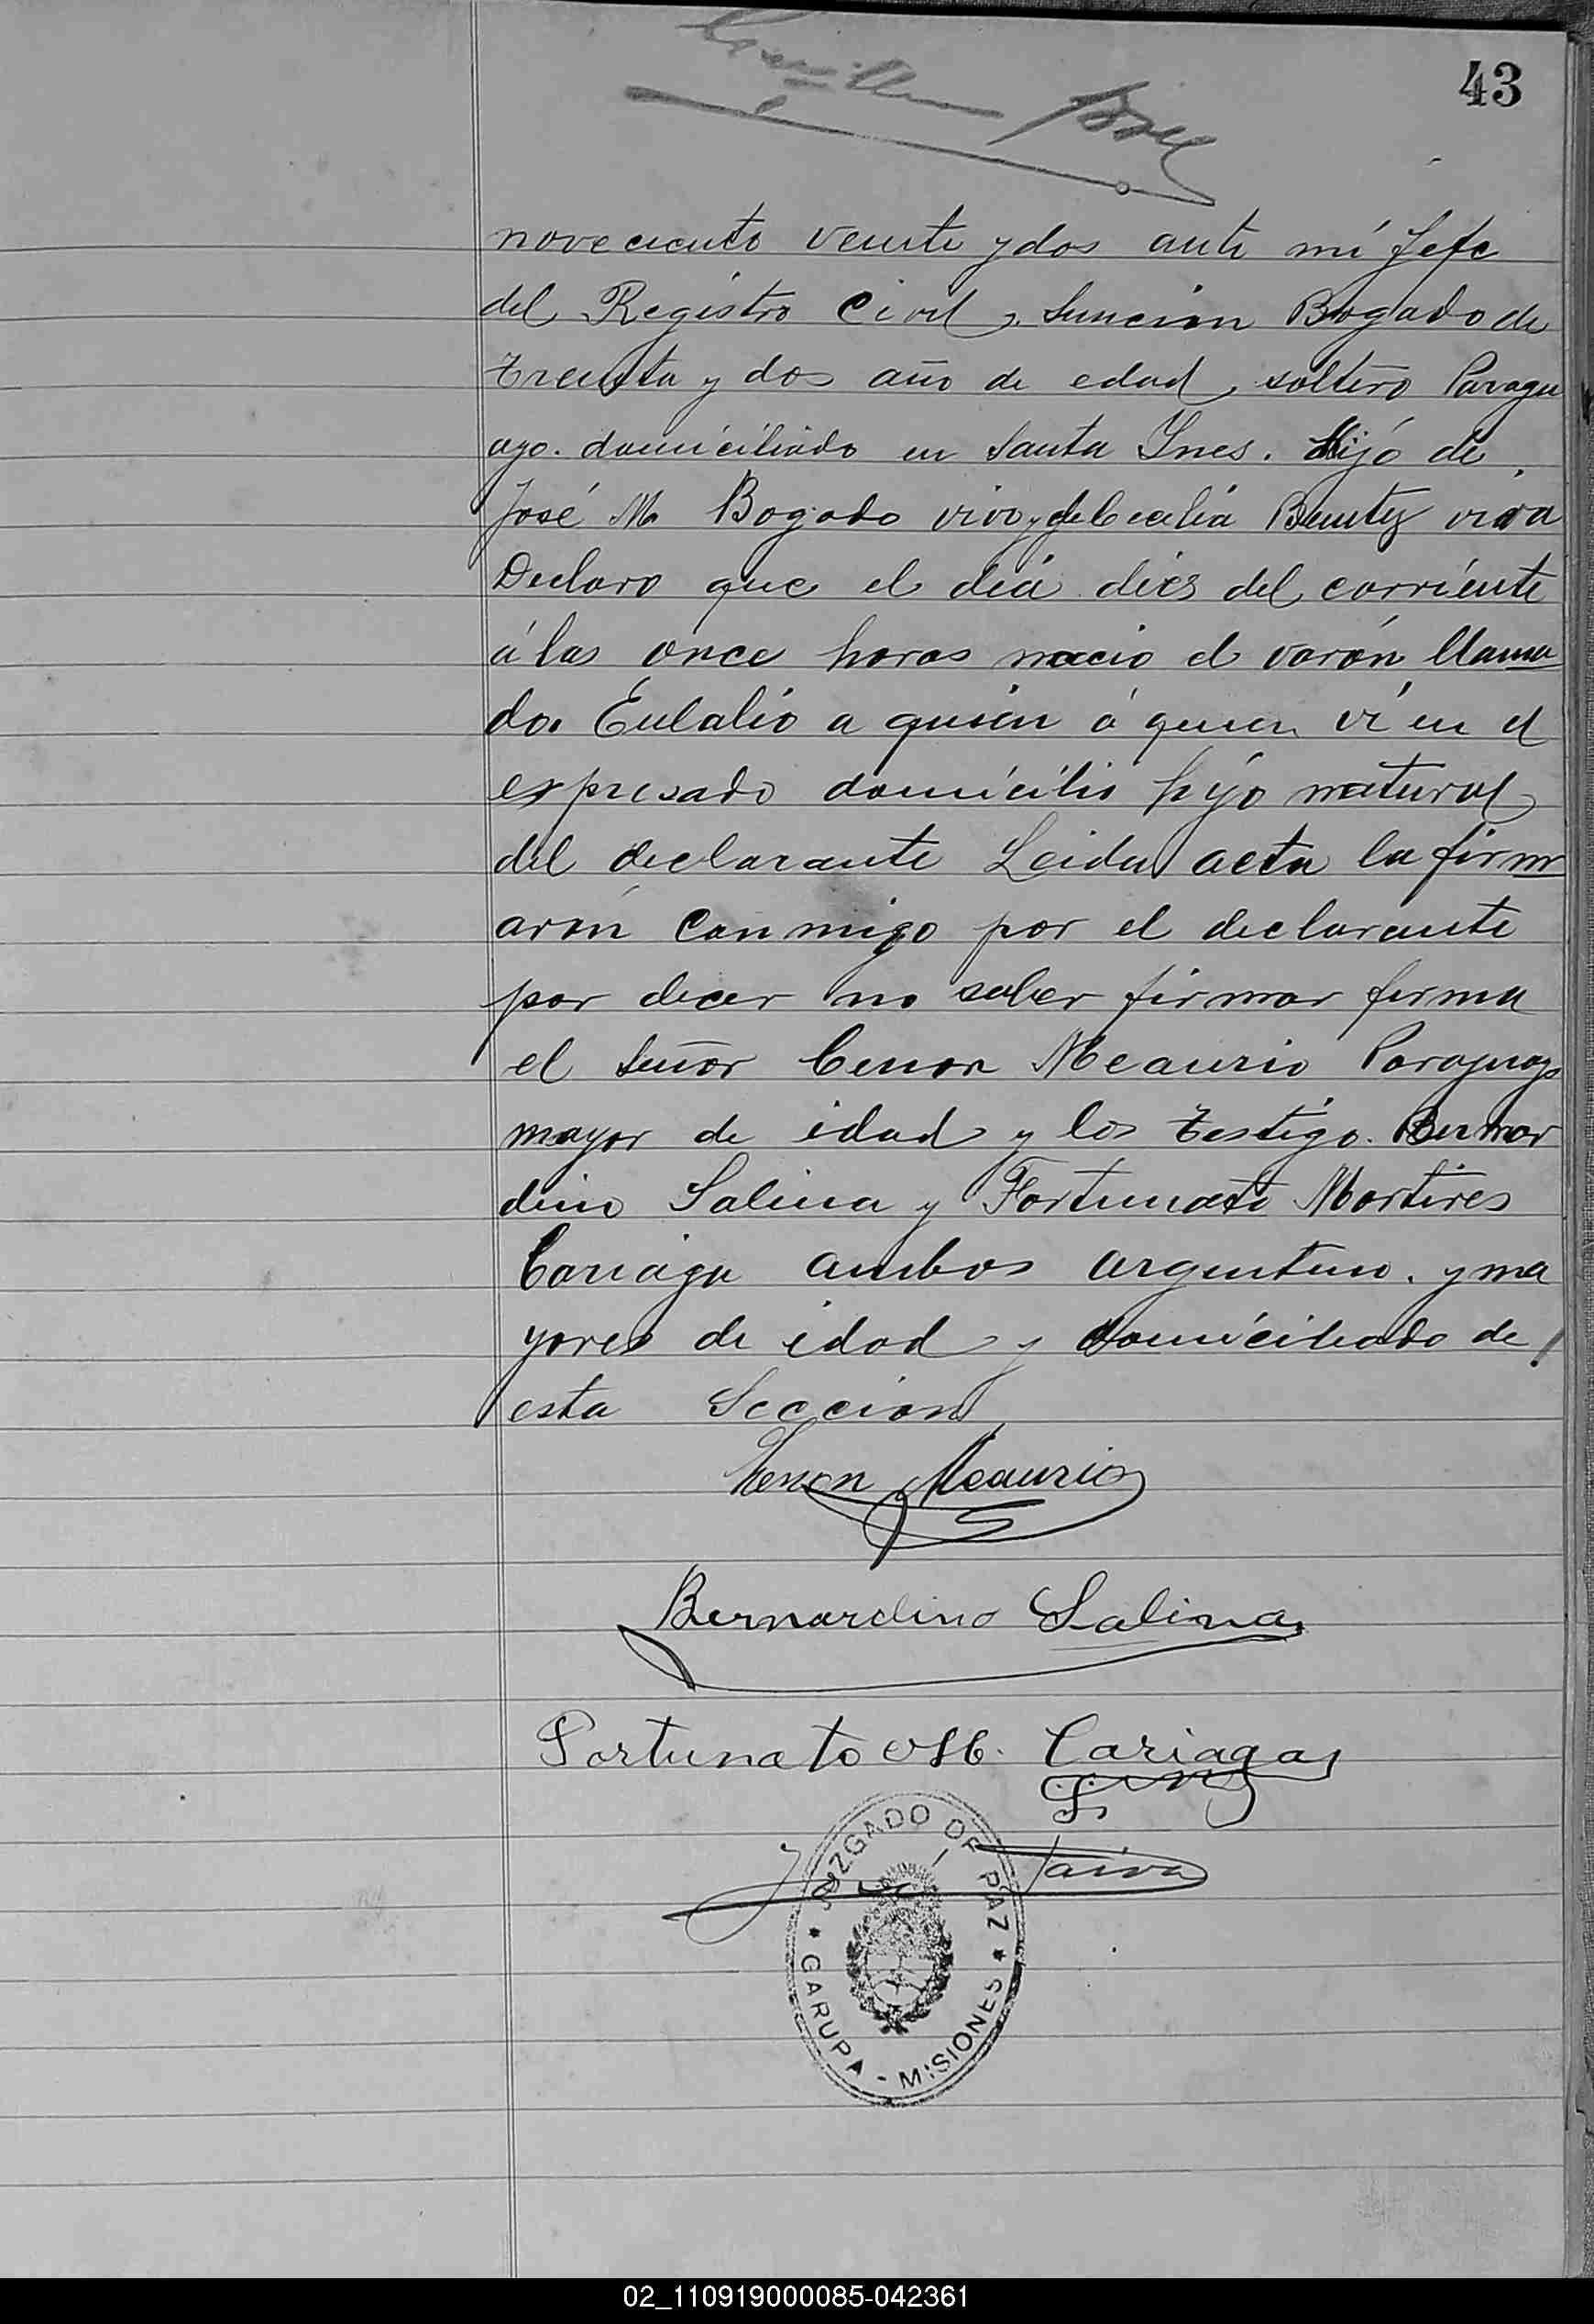 43
novecicuto veinte y dos ante mí Jefe
del Registro Civil, Suncion Bogado de
treinta y dos año de edad, soltero Paragu
ayo. domiciliado en Santa Ynes. Hijo de
José M Bogado vivo y de Cecilia Benitez viva
Declaro que el diá dies del corriente
á las once horas nacio el varón llama
do. Eulalio a quien á quien vi en el
expresado domicilio hijo natural
del declarante Leida acta la firm
aron conmigo por el declarante
por decer no saber firmar firma
el Señor Cenon Meaurio Paraguayo
mayor de idad y los testigo. Bernar
dino Salina y Fortunato Martires
Cariaga ambos argentino. y ma
yores de idad y domiciliado de
esta Seccion
Zenon Meaurio
Bernardino Salina
Fortunato M. Cariaga
Paiva
JUZGADO DE PAZ
* GARUPA - MISIONES *
02_110919000085-042361